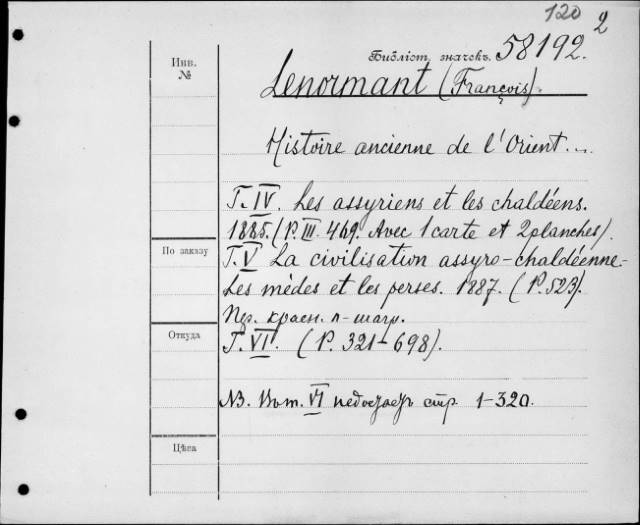 120 2
Инв. №
Библіот. значекъ. 58192.
Lenormant (François).
Histoire ancienne de l'Orient...
T. IV. Les assyriens et les chaldéens.
1885. (P. III. 469. Avec 1 carte et 2 planches).
По заказу
T. V La civilisation assyro-chaldéenne-
Les mèdes et les perses. 1887. (P. 523).
Пер. красн. п-шагр.
Откуда
T. VI. (P. 321-698).
NB. Въ т. VI недостаетъ стр 1-320.
Цѣна